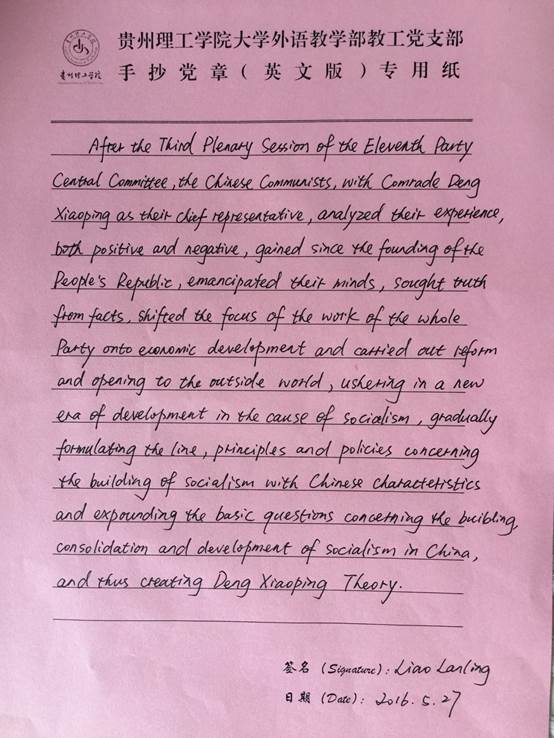 贵州理工学院大学外语教学部教工党支部
贵州理工学院
手抄党章(英文版)专用纸
After the Third Plenary Session of the Eleventh Party
Central Committee, the Chinese Communists, with Comrade Deng
Xiaoping as their chief representative, analyzed their experience,
both positive and negative, gained since the founding of the
People's Republic, emancipated their minds, sought truth
from facts, shifted the focus of the work of the whole
Party onto economic development and carried out reform
and opening to the outside world, ushering in a new
era of development in the cause of socialism, gradually
formulating the line, principles and policies concerning
the building of socialism with Chinese characteristics
and expounding the basic questions concerning the building,
consolidation and development of socialism in China,
and thus creating Deng Xiaoping Theory.
签名(Signature): Liao Lanling
日期(Date): 2016.5.27